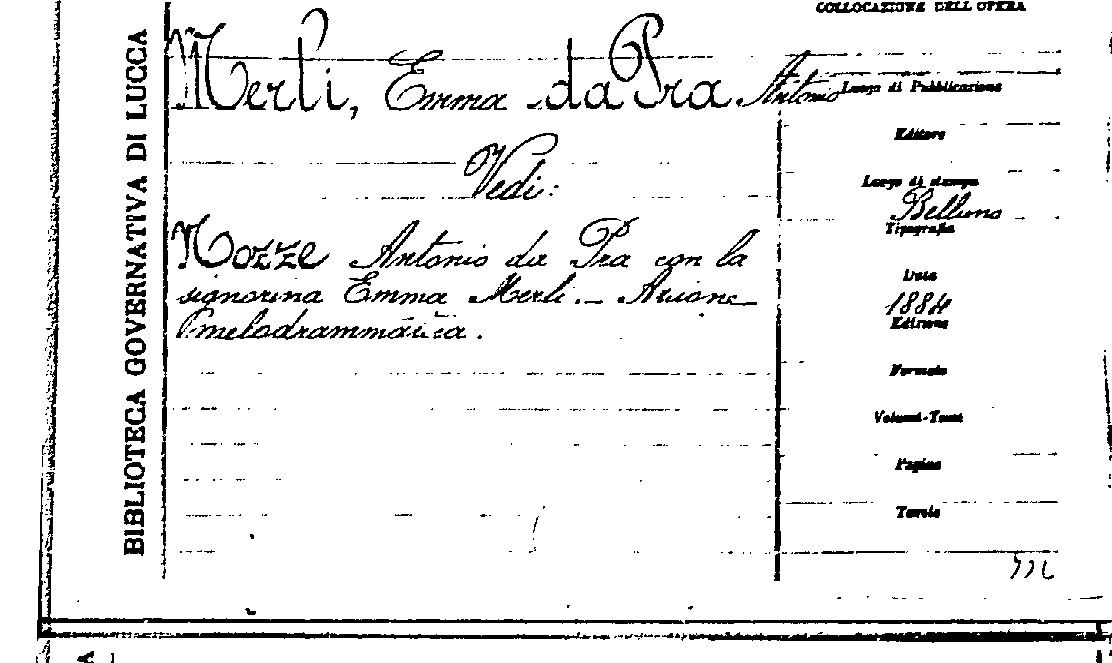 COLLOCAZIONE DELL'OPERA
BIBLIOTECA GOVERNATIVA DI LUCCA
Merli, Emma da Pra Antonio
Vedi:
Nozze Antonio da Pra con la
signorina Emma Merli. — Azione
melodrammatica.
Luogo di Pubblicazione
Editore
Luogo di stampa
Belluno
Tipografia
Data
1884
Edizione
Formato
Volumi-Tomi
Pagine
Tavole